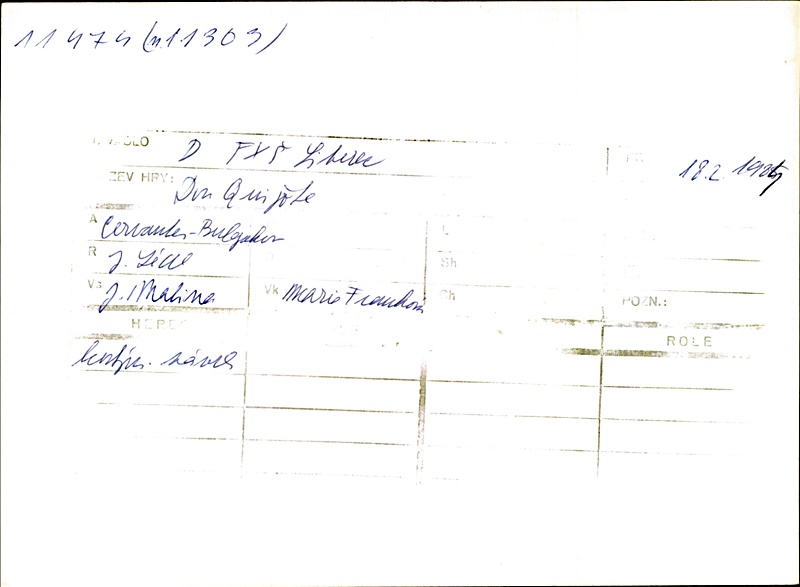 11474 (n11303)
D FXŠ Liberec
18.2.
ZEV HRY: Don Quijote
A Cervantes-Bulgakov
R J. Lédl
Sh
Vs J. Malina Vk Marie Franková Ch
POZN.:
HEREC
ROLE
kostým. návrh